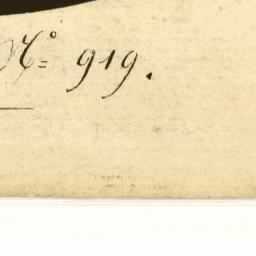 Nº 919.